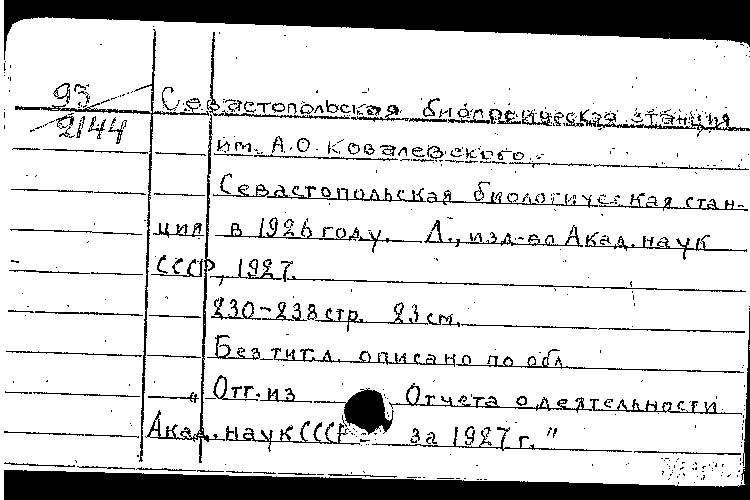 93
2144
Севастопольская биологическая станция
им. А.О. Ковалевского.
Севастопольская биологическая стан-
ция в 1926 году. Л., изд-во Акад. наук
СССР, 1927.
230-238 стр. 23 см.
Без тит. л. описано по обл.
„Отт. из Отчета о деятельности
Акад. наук СССР за 1927 г."